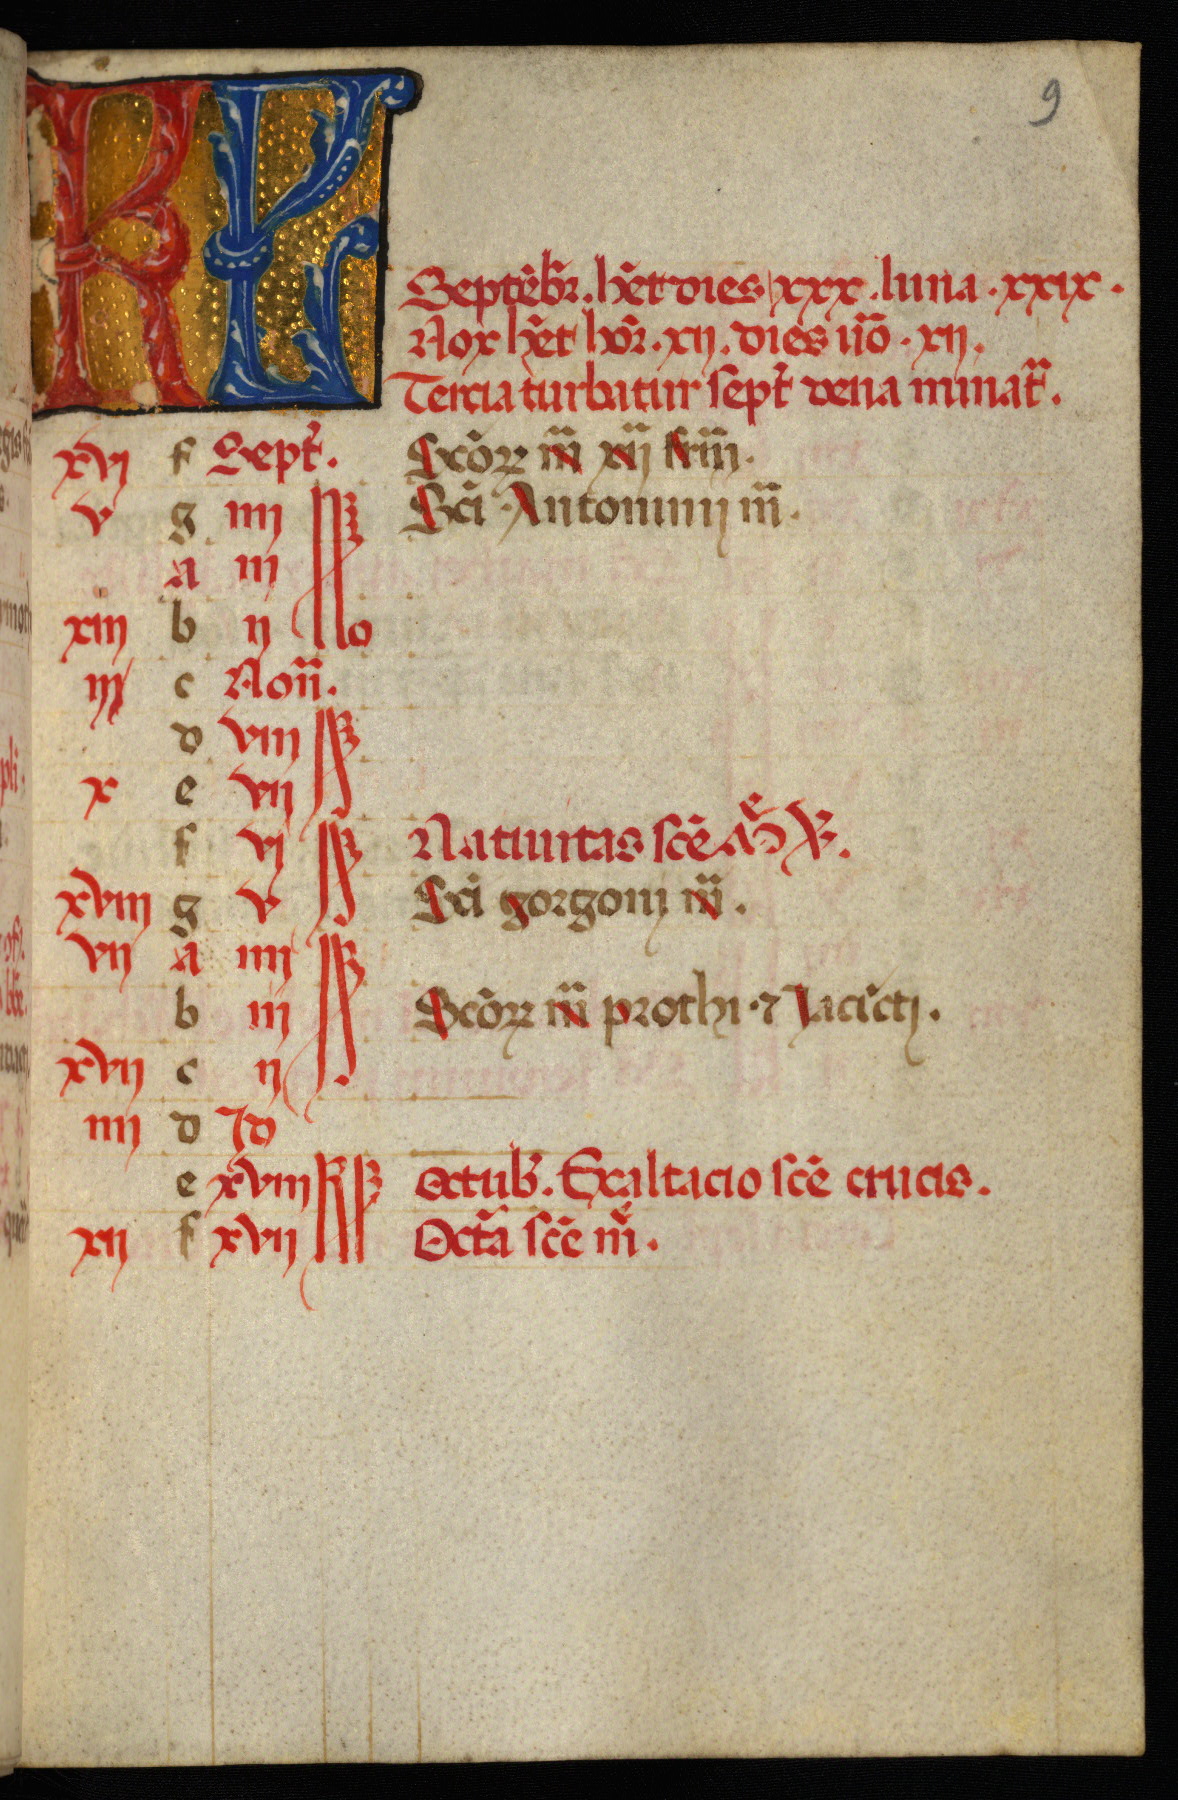 9
KL
Septe̅br̅. h̅et dies xxx. luna. xxix.
Nox h̅et hor̅. xij. dies u̅o. xij.
Tercia turbatur sept̅ dena minat̅.
xvj f Sept̅. Sc̅oꝝ m̅ xij fr̅m.
v g iiij Sc̅i Antonini m̅.
a iij
xiij b ij No
iij c Non̅.
d viij
x e vij
f vj Natiuitas sc̅e M̅e V̅.
xviij g v Sc̅i gorgonij m̅.
vij a iiij
b iij Sc̅oꝝ m̅ prothi. ⁊ Jaci̅cti.
xvij c ij
iiij d Id
e xviij kl̅ octub̅. Exaltacio sc̅e crucis.
xij f xvij kl̅ Oct̅a sc̅e m̅e.